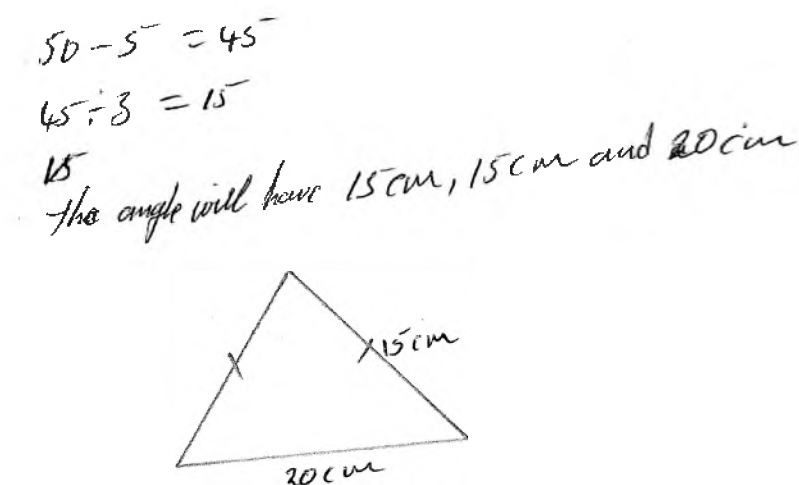 50 - 5 = 45
45 ÷ 3 = 15
15
the angle will have 15 cm, 15 cm and 20 cm
15 cm
20 cm